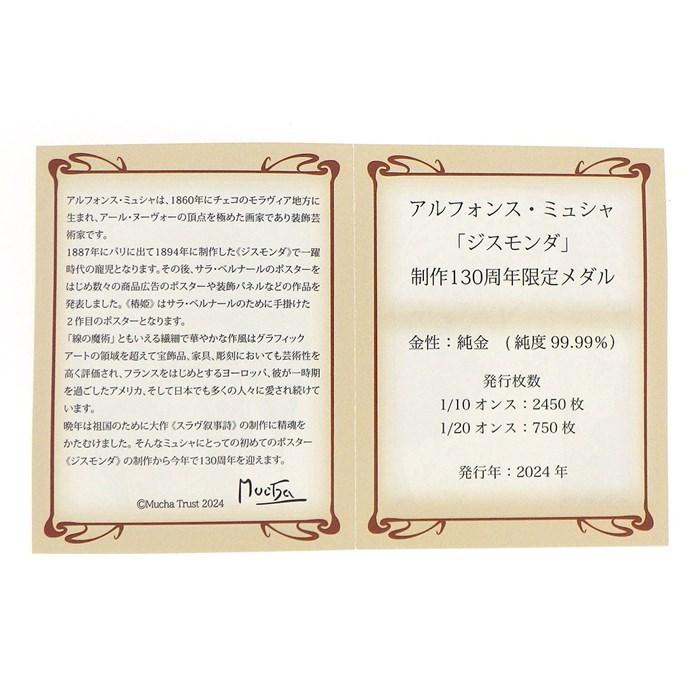 アルフォンス・ミュシャは、1860年にチェコのモラヴィア地方に
生まれ、アール・ヌーヴォーの頂点を極めた画家であり装飾芸
術家です。
1887年にパリに出て1894年に制作した《ジスモンダ》で一躍
時代の寵児となります。その後、サラ・ベルナールのポスターを
はじめ数々の商品広告のポスターや装飾パネルなどの作品を
発表しました。《椿姫》はサラ・ベルナールのために手掛けた
2作目のポスターとなります。
「線の魔術」ともいえる繊細で華やかな作風はグラフィック
アートの領域を超えて宝飾品、家具、彫刻においても芸術性を
高く評価され、フランスをはじめとするヨーロッパ、彼が一時期
を過ごしたアメリカ、そして日本でも多くの人々に愛され続けて
います。
晩年は祖国のために大作《スラヴ叙事詩》の制作に精魂を
かたむけました。そんなミュシャにとっての初めてのポスター
《ジスモンダ》の制作から今年で130周年を迎えます。
Mucha
©Mucha Trust 2024
アルフォンス・ミュシャ
「ジスモンダ」
制作130周年限定メダル
金性：純金 (純度99.99%)
発行枚数
1/10オンス：2450枚
1/20オンス：750枚
発行年：2024年